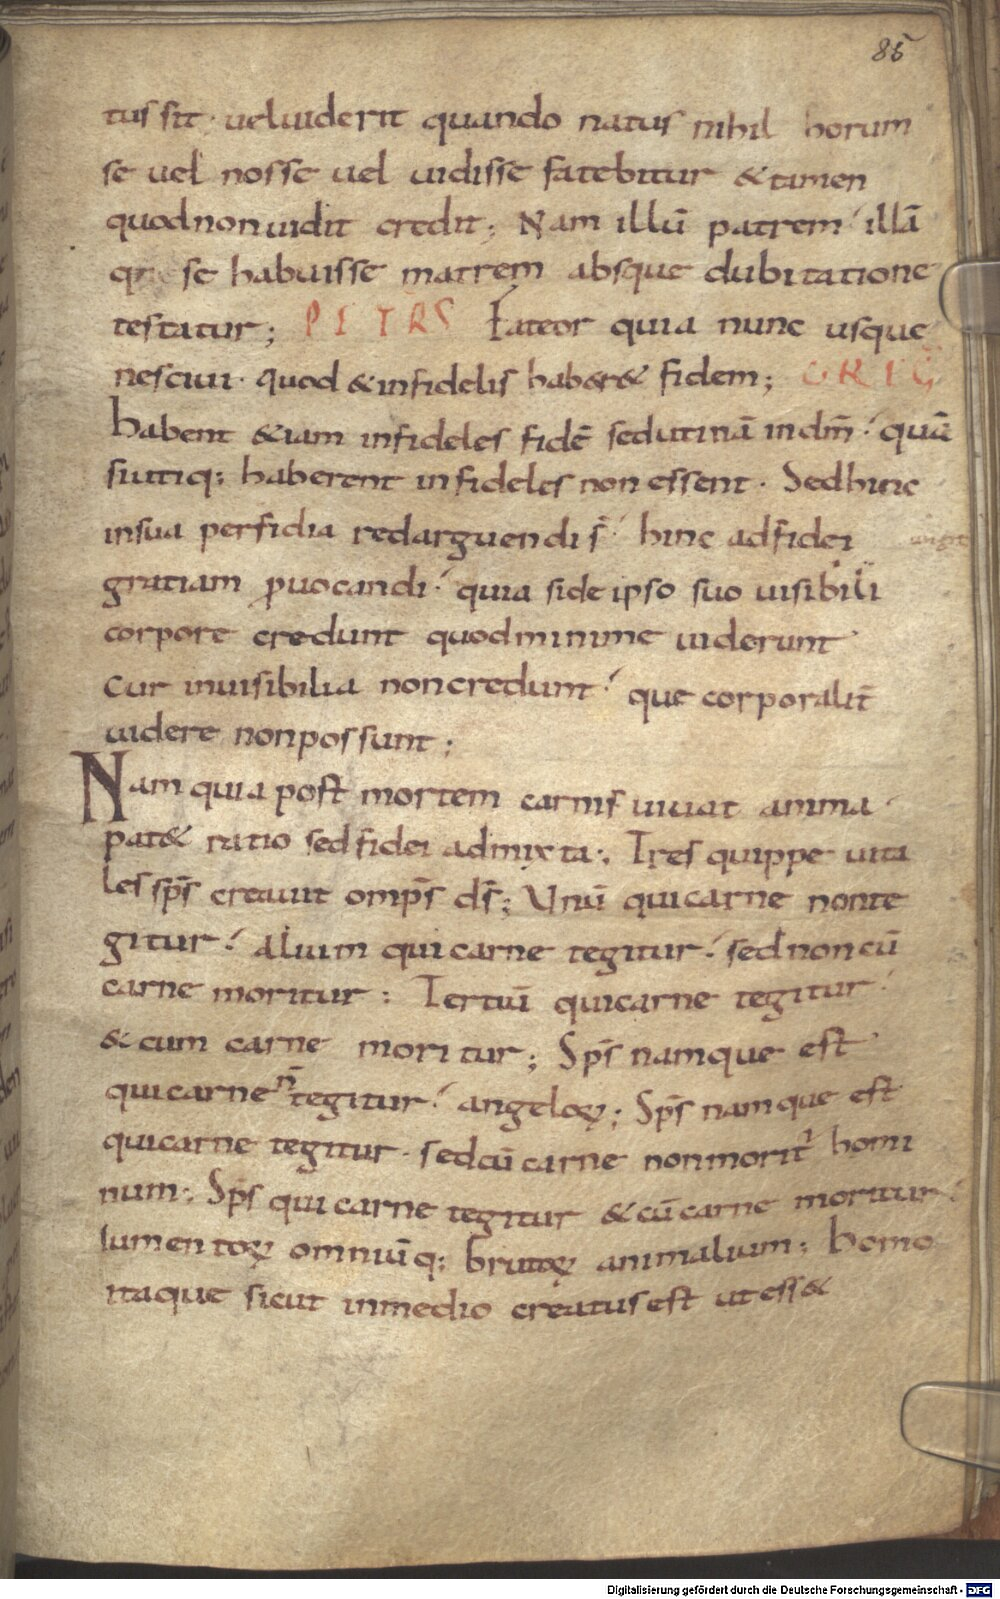 85
tus sit · uel uiderit quando natus nihil horum
se uel nosse uel uidisse fatebitur & tamen
quod non uidit credit; Nam illū patrem illā
q; se habuisse matrem absque dubitatione
testatur; PETRS Fateor quia nunc usque
nesciui · quod & infidelis haber& fidem; GREG
habent &iam infideles fidē sed utinā in dm̄ quā
si utiq; haberent infideles non essent · Sed hinc
in sua perfidia redarguendi s̄ hinc ad fidei
gratiam ꝓuocandi · quia si de ipso suo uisibili
corpore credunt quod minime uiderunt
cur inuisibilia non credunt que corporalit̄
uidere non possunt;
Nam quia post mortem carnis uiuat anima
pat& ratio sed fidei admixta; Tres quippe uita
les sp̄s creauit omp̄s d̄s; Unū qui carne non te
gitur alium qui carne tegitur sed non cū
carne moritur; Tertiū qui carne tegitur
& cum carne moritur; Sp̄s namque est
qui carne n̄ tegitur angeloꝝ; Sp̄s namque est
qui carne tegitur · sed cū carne non morit᷑ homi
num; Sp̄s qui carne tegitur & cū carne moritur
iumentoꝝ omniūq; brutoꝝ animalium; homo
itaque sicut in medio creatus est ut ess&
Digitalisierung gefördert durch die Deutsche Forschungsgemeinschaft - DFG